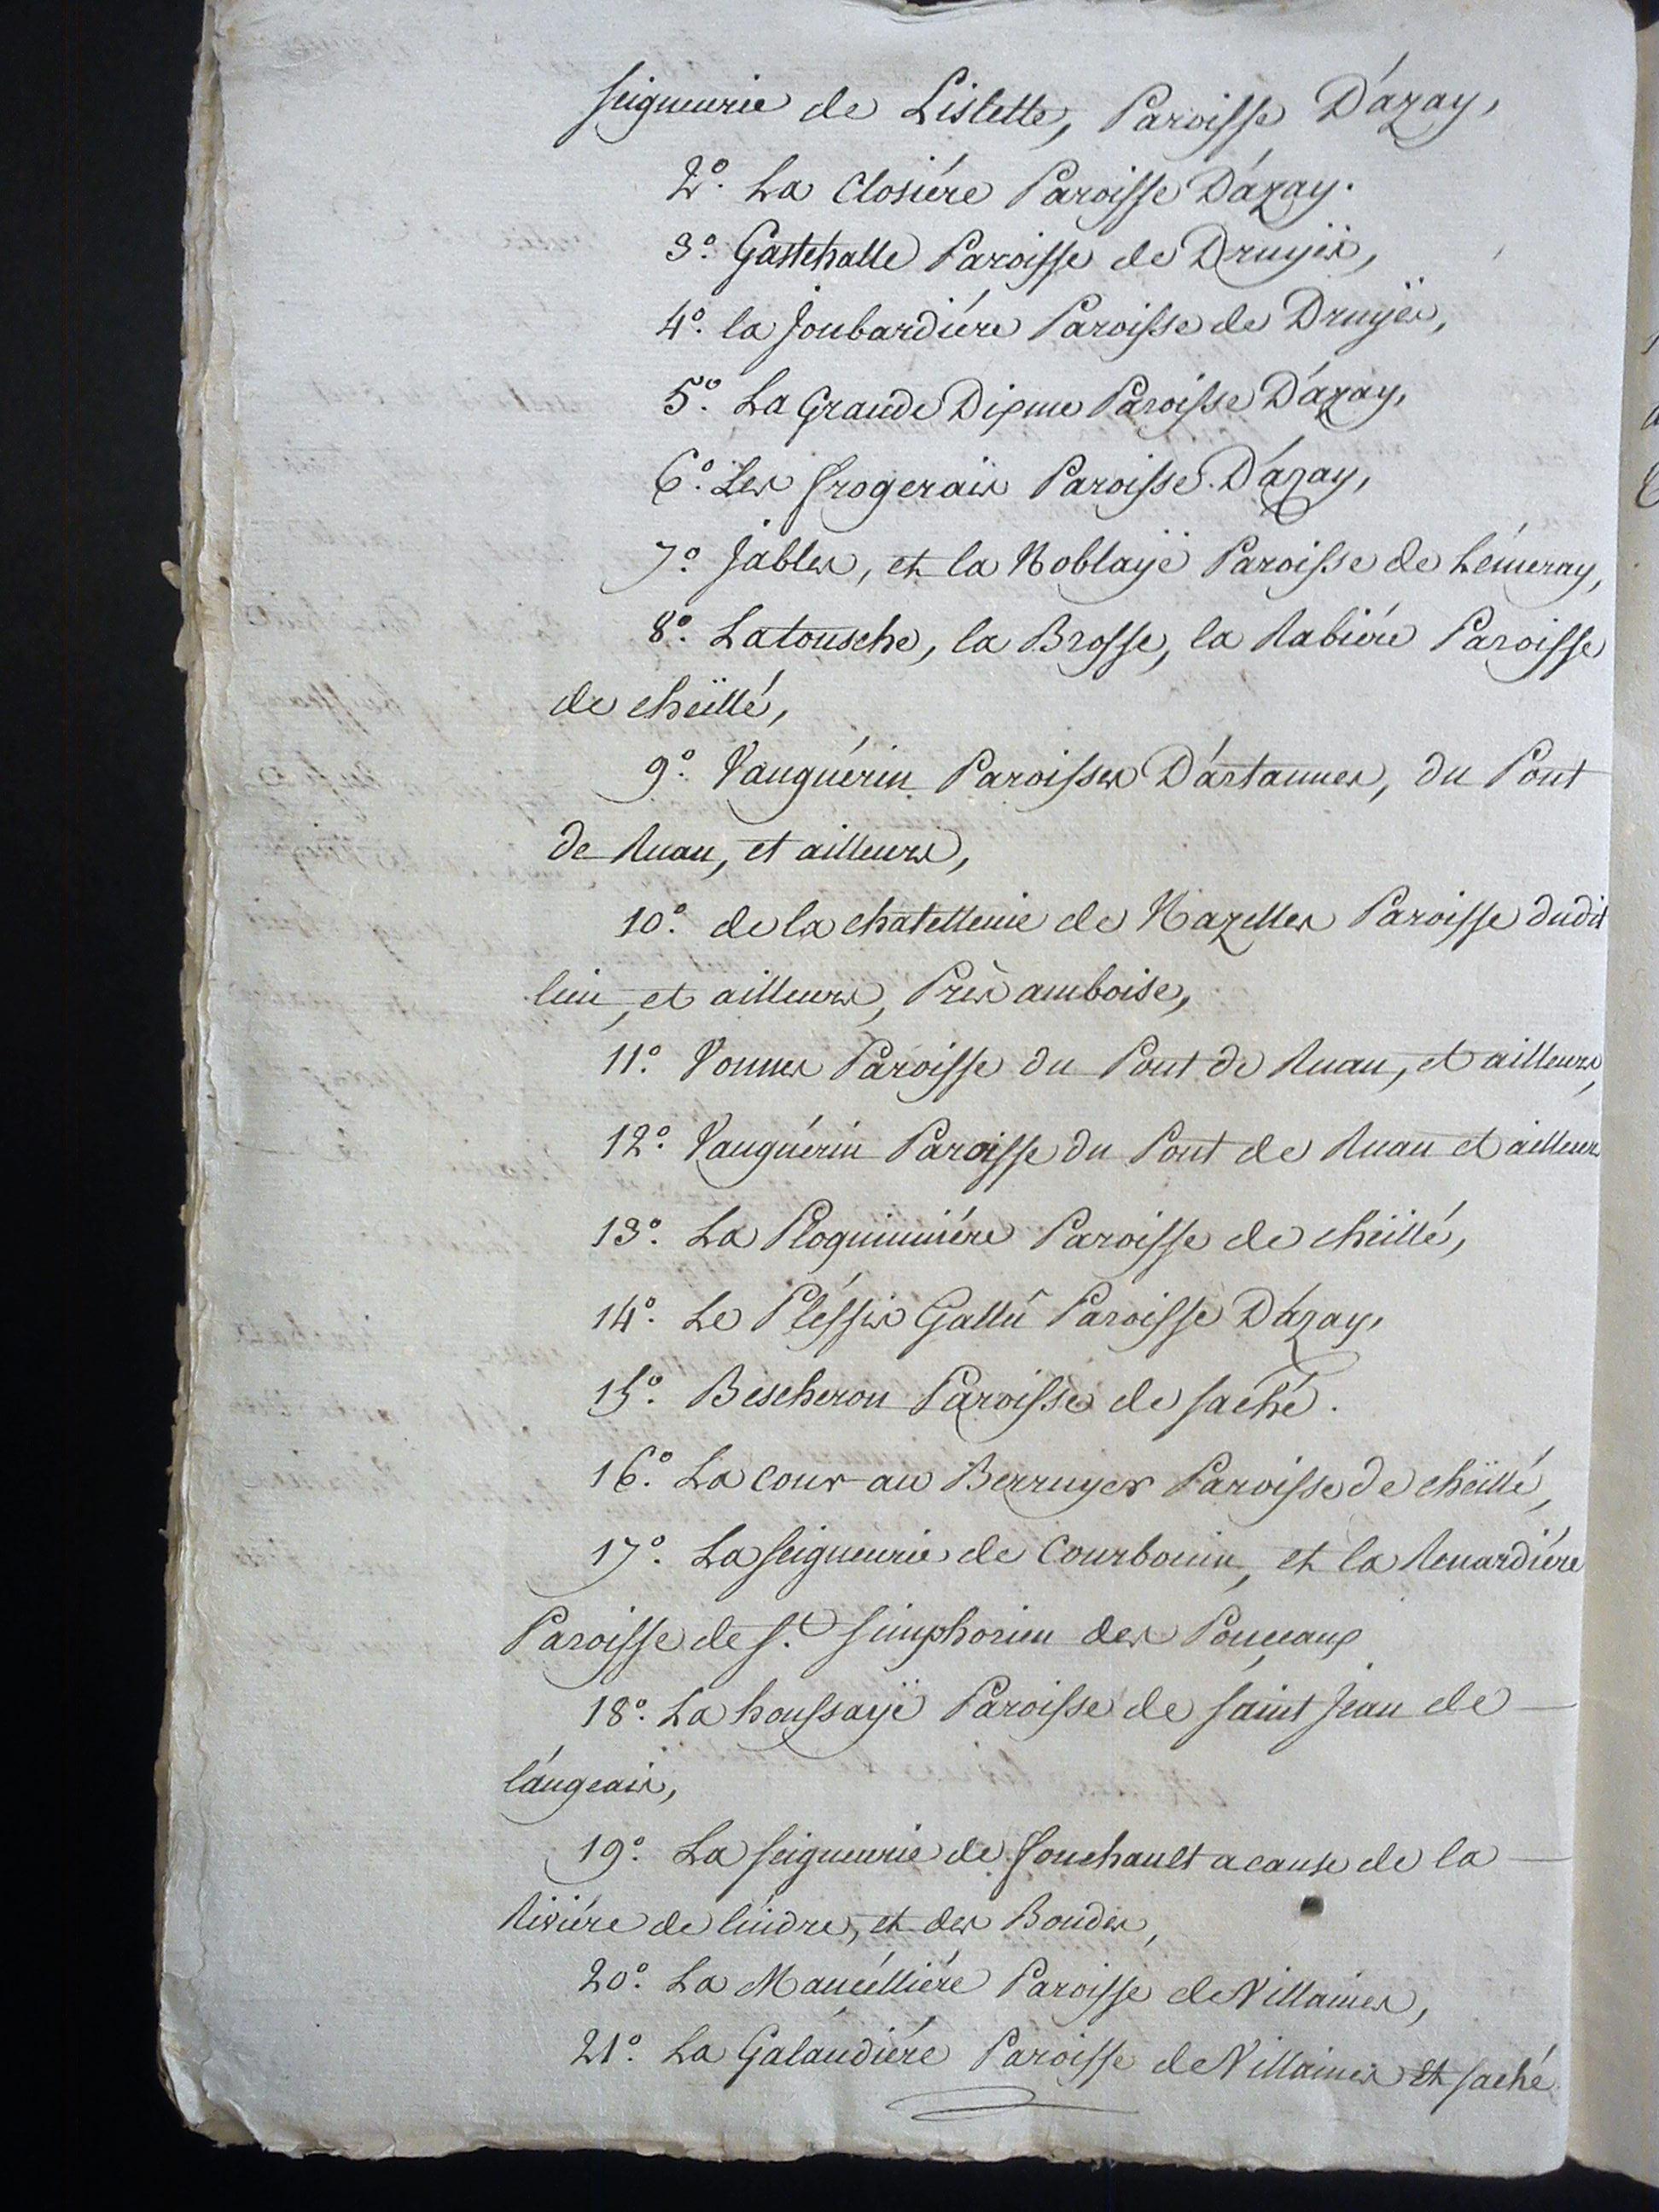 seigneurie de Lislette, Paroisse D'azay,
2º. La Closiére Paroisse D'azay.
3º. Gastehalle Paroisse de Druÿes,
4º. la Joubardiére Paroisse de Druÿes,
5º. La Grande Dixme Paroisse D'azay,
6º. Les frogerais Paroisse D'azay,
7º. Jables, et la Noblaÿe Paroisse de Lémeray,
8º. Latousche, la Brosse, la Rabiére Paroisse
de cheïllé,
9º. Vauguérin Paroisses D'artannes, du Pont
de Ruau, et ailleurs,
10º. de la chatellenie de Nazelles Paroisse dudit
lieu, et ailleurs, Près amboise,
11º. Vonnes Paroisse du Pont de Ruau, et ailleurs,
12º. Vauguérin Paroisse du Pont de Ruau et ailleurs
13º. La Ploquinniére Paroisse de cheïllé,
14º. Le Pléssis Gallû Paroisse D'azay,
15º. Bescheron Paroisse de saché.
16º. La Cour au Berruyer Paroisse de cheïllé,
17º. La seigneurie de Courbouin, et la Renardiére
Paroisse de St. simphorien des Ponceaux
18º. La houssaÿe Paroisse de saint Jean de
langeais,
19º. La seigneurie de fouchault a cause de la
Riviére de lindre, et des Bondes,
20º. La Mancélliére Paroisse de Villaines,
21º. La Galandiére Paroisse de Villaines et saché